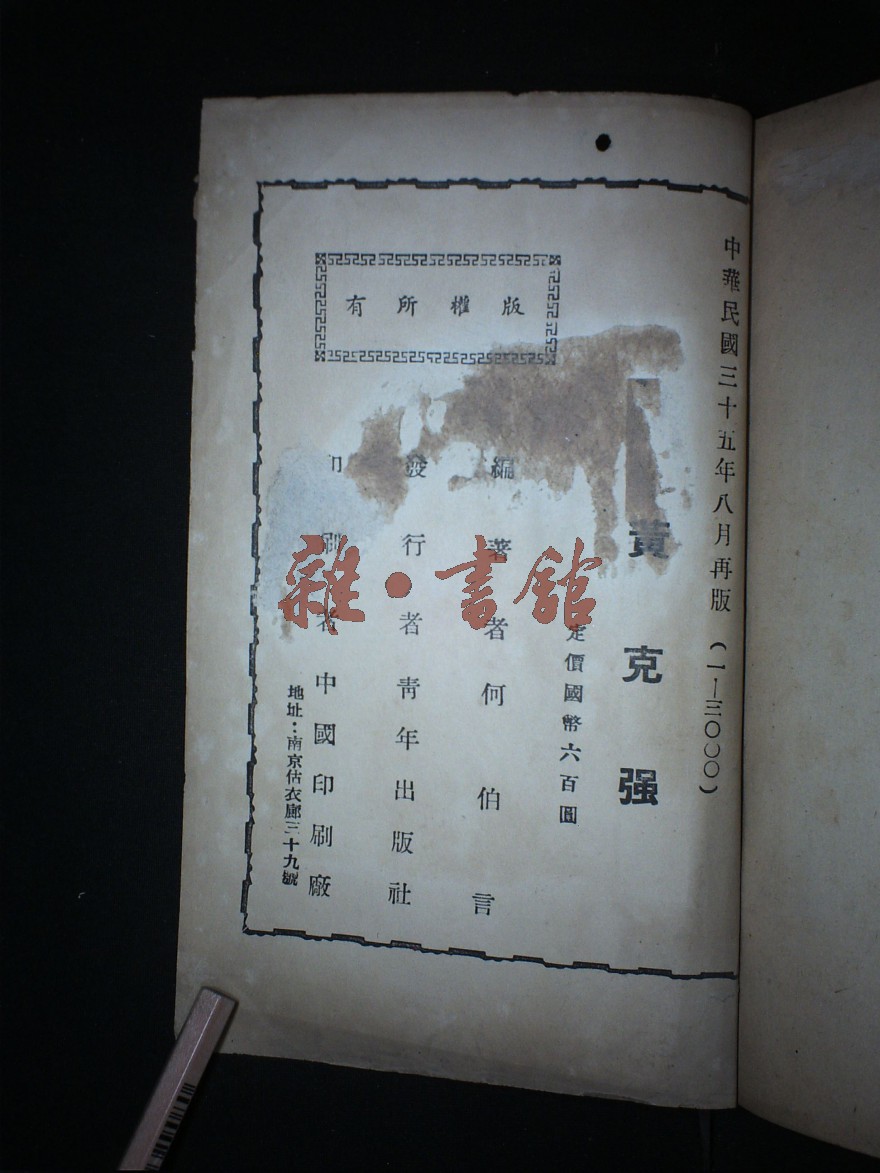 中華民國三十五年八月再版（一—三〇〇〇）
黃克强
定價國幣六百圓
編著者何伯言
發行者靑年出版社
印刷者中國印刷廠
地址：南京估衣廊三十九號
版權所有
雜·書館